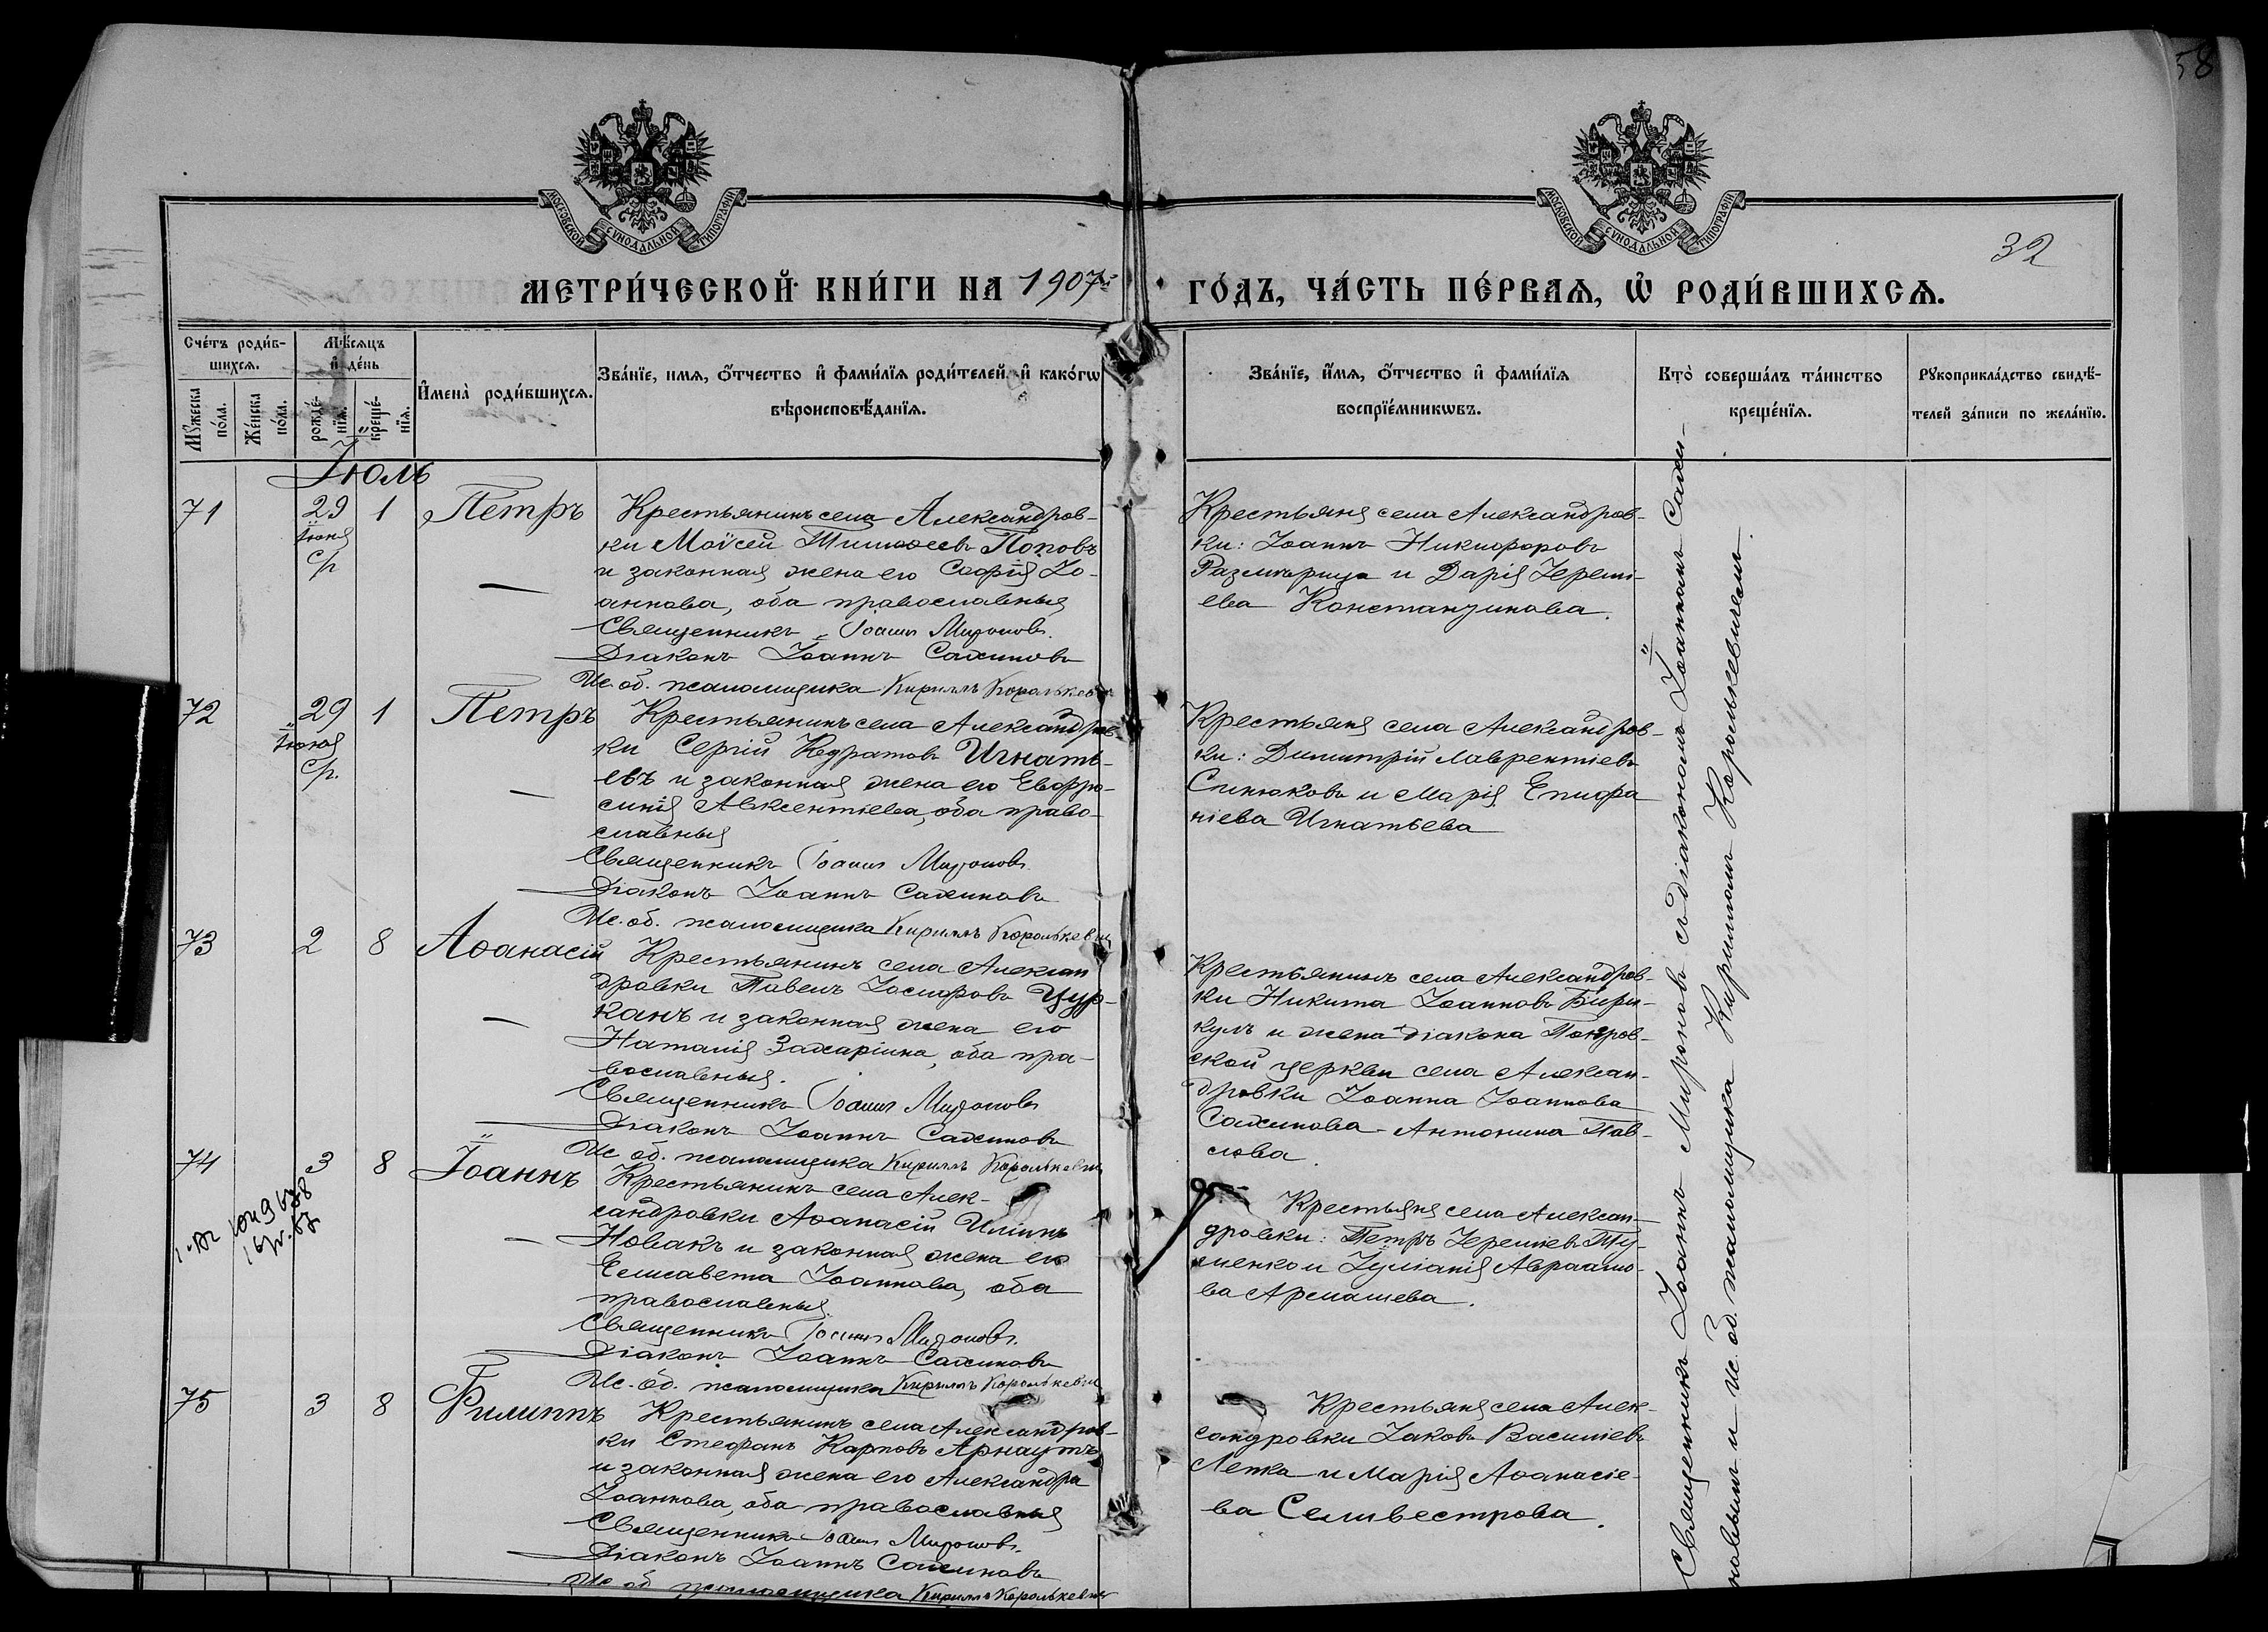 58
МОСКОВСКОЙ СѴНОДАЛЬНОЙ ТИПОГРАФІИ
МОСКОВСКОЙ СѴНОДАЛЬНОЙ ТИПОГРАФІИ
32
МЕТРИ́ЧЕСКОЙ КНИ́ГИ НА 1907й
ГО́ДЪ, ЧА́СТЬ ПЕ́РВАѦ, Ѡ҆ РОДИ́ВШИХСѦ.
Сче́тъ роди́в-
шихсѧ.
Мѣ́сѧцъ
и҆ де́нь
Мꙋ́жеска
по́ла.
Же́нска
по́ла.
рожде́-
нїѧ.
креще́-
нїѧ.
И҆мена̀ роди́вшихсѧ.
Зва́нїе, имѧ, ѻ҆́тчество и҆ фами́лїѧ роди́телей, и҆ како́гѡ
вѣроисповѣ́данїѧ.
Зва́нїе, и҆́мѧ, ѻ҆́тчество и҆ фами́лїѧ
воспрїе́мникѡвъ.
Кто̀ соверша́лъ та́инство
креще́нїѧ.
Рꙋкоприкла́дство свидѣ́-
телей за́писи по жела́нїю.
Іюль
71
29
Іюня
Ср
1
Петръ
Крестьянинъ села Александров-
ки Моѵсей Тимоѳеевъ Поповъ
и законная жена его Софія Іо-
аннова, оба православныя
Священникъ Іоаннъ Мироновъ.
Діаконъ Іоаннъ Сахиновъ
Ис. об. псаломщика Кириллъ Королькевич
Крестьяня села Александров-
ки: Іоаннъ Никифоровъ
и Дарія Іеремі-
ева Константинова.
72
29
Іюня
Ср.
1
Петръ
Крестьянинъ села Александров
ки Сергій Кодратовъ Игнать-
евъ и законная жена его Евфро-
синія Авксентіева, оба право-
славныя
Священникъ Іоаннъ Мироновъ
Діаконъ Іоаннъ Сахиновъ
Ис. об. псаломщика Кириллъ Королькевич
Крестьяня села Александров-
ки: Димитрій Лаврентіевъ
Спинюковъ и Марія Епифа
ніева Игнатьева
73
2
8
Аѳанасій
Крестьянинъ села Алексан
дровки Павелъ Іосифовъ Цур-
канъ и законная жена его
Наталія Захаріина, оба пра-
вославныя.
Священникъ Іоаннъ Мироновъ
Діаконъ Іоаннъ Сахиновъ
Ис об. псаломщика Кириллъ Королькевич
Крестьянинъ села Александров-
ки Никита Іоанновъ Бири-
кулъ и жена діакона Покров-
ской церкви села Алексан-
дровки Іоанна Іоаннова
Сахинова Антонина Пав-
лова.
74
3
8
Іоаннъ
Крестьянинъ села Алек-
сандровки Аѳанасій Иліинъ
Новакъ и законная жена его
Елисавета Іоаннова, оба
православныя.
Священникъ Іоаннъ Мироновъ.
Діаконъ Іоаннъ Сахиновъ
Ис. об. псаломщика Кириллъ Королькевич
Крестьяня села Алексан-
дровки: Петръ Іереміевъ
и Іуліанія Авраамо-
ва Армашева.
75
3
8
Филиппъ
Крестьянинъ села Александров-
ки Стефанъ Карповъ Арнаутъ
и законная жена его Александра
Іоаннова, оба православныя
Священникъ Іоаннъ Мироновъ.
Діаконъ Іоаннъ Сахиновъ
Ис об псаломщика Кириллъ Королькевич
Крестьяня села Алек-
сандровки Іаковъ Василіевъ
Лепка и Марія Аѳанасіе-
ва Селивестрова.
Священникъ Іоаннъ Мироновъ съ діакономъ Іоанномъ Сахи-
новымъ и ис. об. псаломщика Кирилломъ Королькевичемъ.